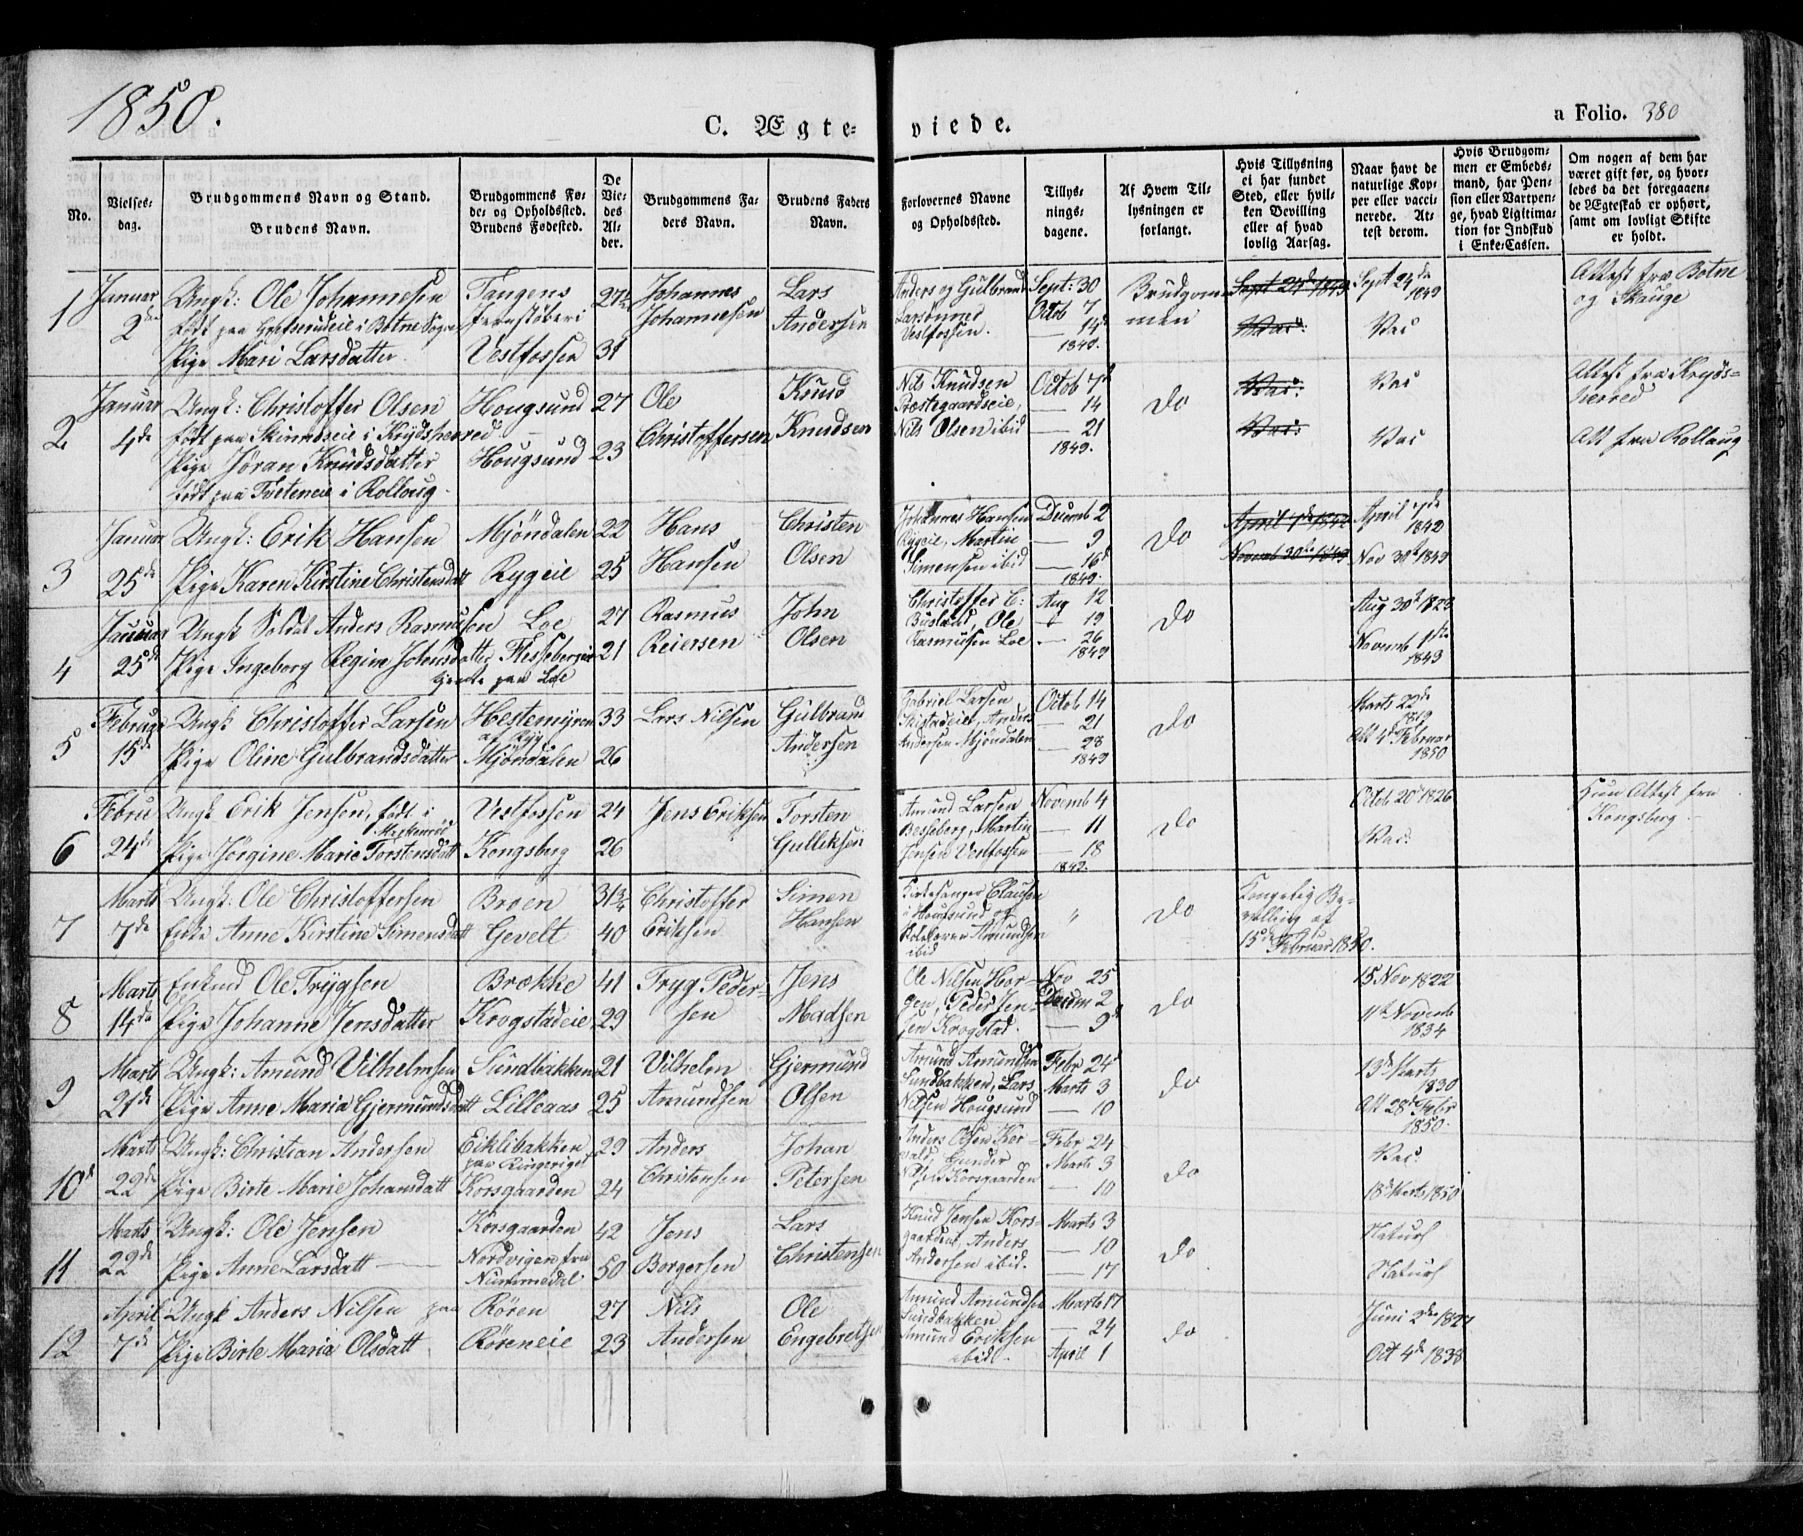 1850.
C. Ægte-
viede.
a Folio. 380
No.
Vielses-
dag.
Brudgommens Navn og Stand.
Brudens Navn.
Brudgommens Fø-
de- og Opholdssted.
Brudens Fødested.
De
Vie-
des
Al-
der.
Brudgommens Fa-
ders Navn.
Brudens Faders
Navn.
Forlovernes Navne
og Opholdssted.
Tillys-
nings-
dagene.
Af Hvem Til-
lysningen er
forlangt.
Hvis Tillysning
ei har fundet
Sted, eller hvil-
ken Bevilling
eller af hvad
lovlig Aarsag.
Naar havt de
naturlige Kop-
per eller vacci-
nerede. At-
test derom.
Hvis Brudgom-
men er Embeds-
mand, har Pen-
sion eller Vartpen-
ge, hvad Ligitima-
tion for Indskud
i Enke-Cassen.
Om nogen af dem har
været gift før, og hvor-
ledes da det foregaaen-
de Ægteskab er ophørt,
samt om lovligt Skifte
er holdt.
1
Januar
2den
Ungk: Ole Johannesen
født paa i Botne Sogn
Pige Mari Larsdatter
Tangens
Vestfossen
27½
31
Johannes
Johannesen
Lars
Andersen
Anders og Gulbrand
Larsønner
Vestfossen.
Sept: 30
Octob 7
— 14d
1849.
Brudgom-
men
Sept 24de 1849
Vac:
Sept 24de
1849
Vac
Attest fra Botne
og Skauge
2
Januar
4de
Ungk: Christoffer Olsen
født paa Skinneseie i Krydsherred
Pige Jøran Knudsdatter
født paa Tveteneie i Rollaug
Hougsund
Hougsund
27
23
Ole
Christoffersen
Knud
Knudsen
Nils Knudsen
Præstegaardseie,
Nils Olsen ibid
Octob 7d
— 14
— 21
1849.
Do
Vac:
Vac:
Vac
Vac
Attest fra Kryds-
herred
Att fra Rollaug
3
Januar
25de
Ungk: Erik Hansen
Pige Karen Kirstine Christensdatt
Mjøndalen
Rygeie
22
25
Hans
Hansen
Christen
Olsen
Johannes Hansen
Rygeie, Martin
Simensen ibid
Decemb 2
— 9
— 16d
1849.
Do
Novemb 30te 1849
Nov 30te 1849
4
Januar
25de
Ungk Soldat Anders Rasmusen
Pige Ingeborg Regine Johnsdatter
tjente paa Loe
Loe
Flesebergeie
27
21
Rasmus
Reiersen
John
Olsen
Christoffer C:
Busland, Ole
Rasmusen Loe
Aug 12
— 19
— 26
1849
Do
Aug 30te 1823
Novemb 1ste
1849
5
Februar
15de
Ungk Christoffer Larsen
Pige Oline Gulbrandsdatter
Hestemyren
af Ryg
Mjøndalen
33
26
Lars Nilsen
Gulbrand
Andersen
Gabriel Larsen
Skistadeiet, Anders
Andersen Mjøndalen
Octob 14
— 21
— 28
1849
Do
Marts 22de
1819
Att 4de Februar
1850
6
Febru
24de
Ungk Erik Jensen, født i
Pige Jørgine Marie Torstensdatt
Vestfossen
Kongsberg
24
26
Jens Eriksen
Torsten
Gulliksen
Amund Larsen
Besseberg, Martin
Jensen Vestfossen
Novemb 4
— 11
— 18
1849.
Do
Octob 20de 1826
Vac:
Hun Attest fra
Kongsberg.
7
Marts
7de
Ungk: Ole Christoffersen
Enke Anne Kirstine Simensdatt
Broen
Gevelt
31¾
40
Christoffer
Eriksen
Simen
Hansen
Kirkesanger Clausen
i Hougsund og
Skoleholder Amundsen
ibid
"
Do
Kongelig Be-
villing af
15de Februar 1850.
8
Marts
14de
Enkmd Ole Trygsen
Pige Johanne Jensdatter
Brække
Krogstadeie
41
29
Tryg Peder-
sen
Jens
Madsen
Ole Nilsen Hor-
gen, Peder Jen-
sen Krogstad.
Nov 25
Decem 2
— 9d
Do
15 Nov 1822
11te Novemb
1834
9
Marts
21de
Ungk: Amund Vilhelmsen
Pige Anne Maria Gjermundsdatt
Sundbakken
Lilleaas
21
25
Vilhelm
Amundsen
Gjermund
Olsen
Amund Amundsen
Sundbakken, Lars
Nilsen Hougsund
Febr 24
Marts 3
— 10
Do
13de Marts
1830
Att 28de Febr
1850.
10
Marts
22de
Ungk: Christian Andersen
Pige Birte Marie Johansdatt
Eiklibakken
paa Ringeriget
Korsgaarden
29
24
Anders
Christensen
Johan
Petersen
Anders Olsen Ker-
vald, Gunder
Nilsen Korsgaarden
Febr 24
Marts 3
— 10
Do
Vac:
18de Marts 1850
11
Marts
22de
Ungk: Ole Jensen
Pige Anne Larsdatt
Korsgaarden
Nordvigen fra
Nummedal
42
50
Jens
Borgersen
Lars
Christensen
Knud Jensen Kors-
gaarden, Anders
Andersen ibid.
Marts 3
— 10
— 17
Do
Naturl
Naturl
12
April
7de
Ungk Anders Nilsen paa
Pige Birte Maria Olsdatt
Røren
Røreneie
27
23
Nils
Andersen
Ole
Engebretsen
Amund Amundsen
Sundbakken
Amund Eriksen
ibid.
Marts 17
— 24
April 1
Do
Juni 2den 1827
Oct 4de 1838